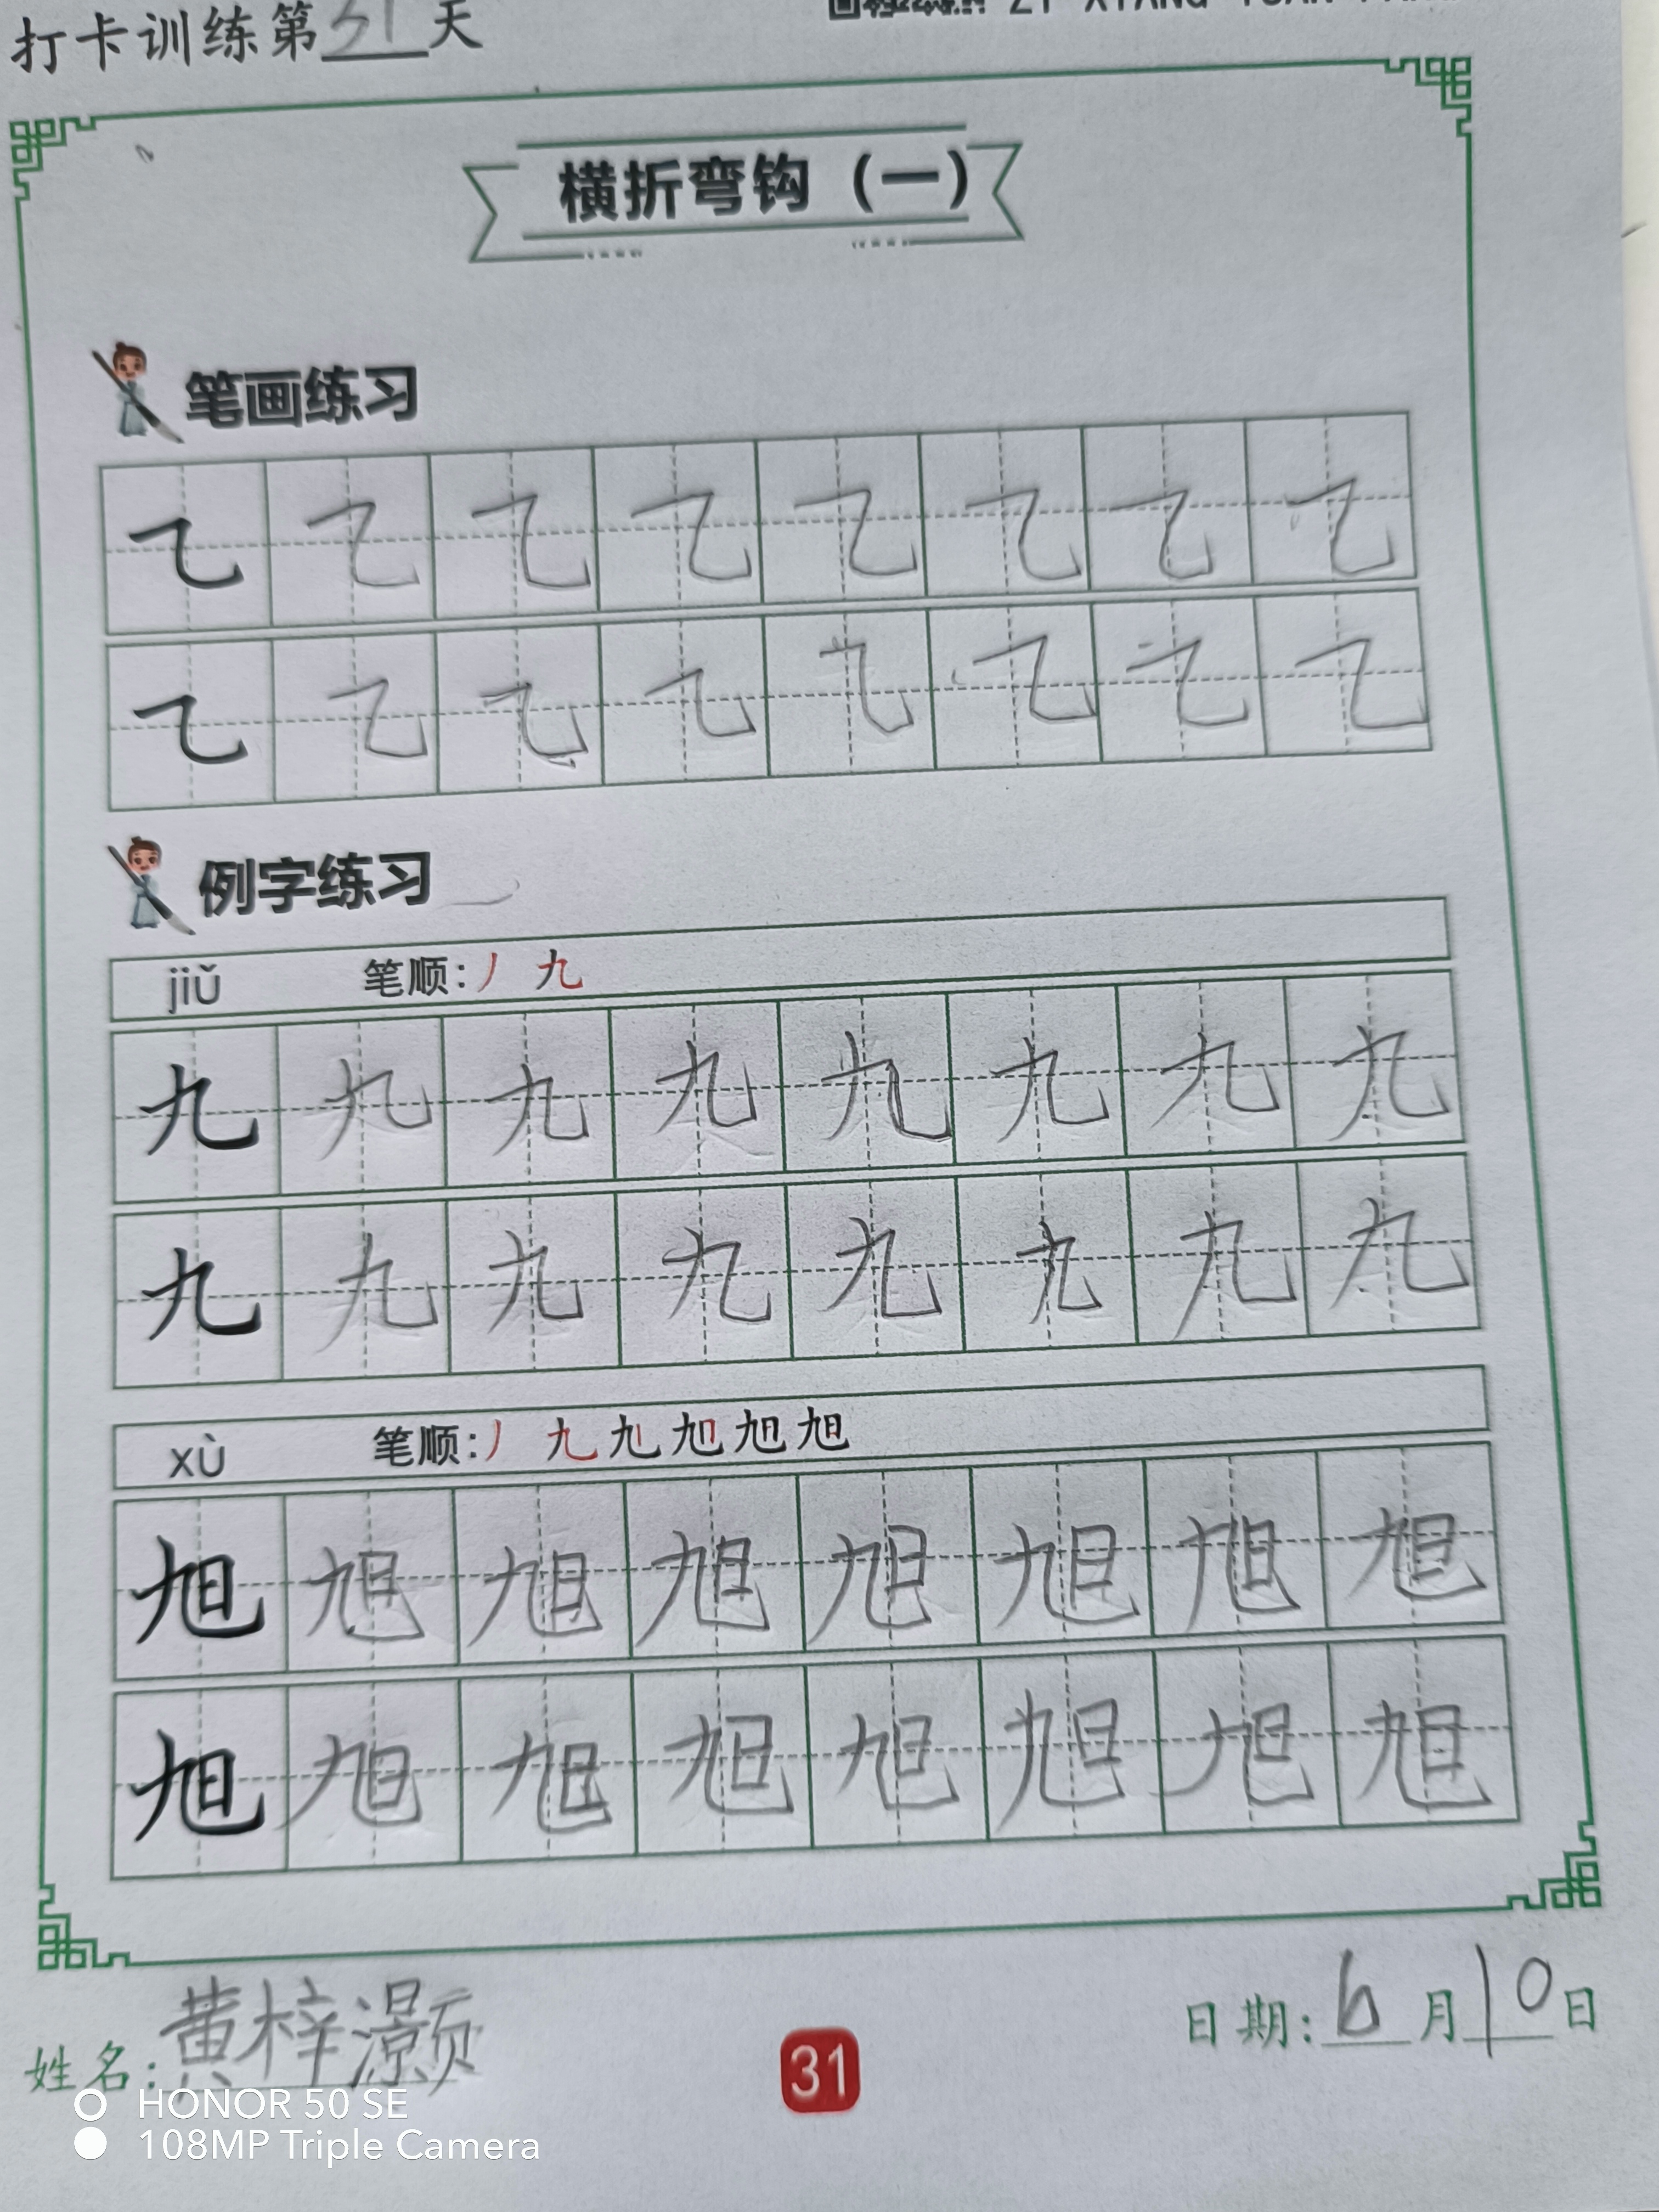 打卡训练第31天
横折弯钩（一）
笔画练习
例字练习
jiǔ 笔顺：丿 九
九 九 九 九 九 九 九 九
九 九 九 九 九 九 九 九
xù 笔顺：丿 九 九 旭 旭 旭
旭 旭 旭 旭 旭 旭 旭 旭
旭 旭 旭 旭 旭 旭 旭 旭
姓名：黄梓灏
日期：6月10日
31
HONOR 50 SE
108MP Triple Camera